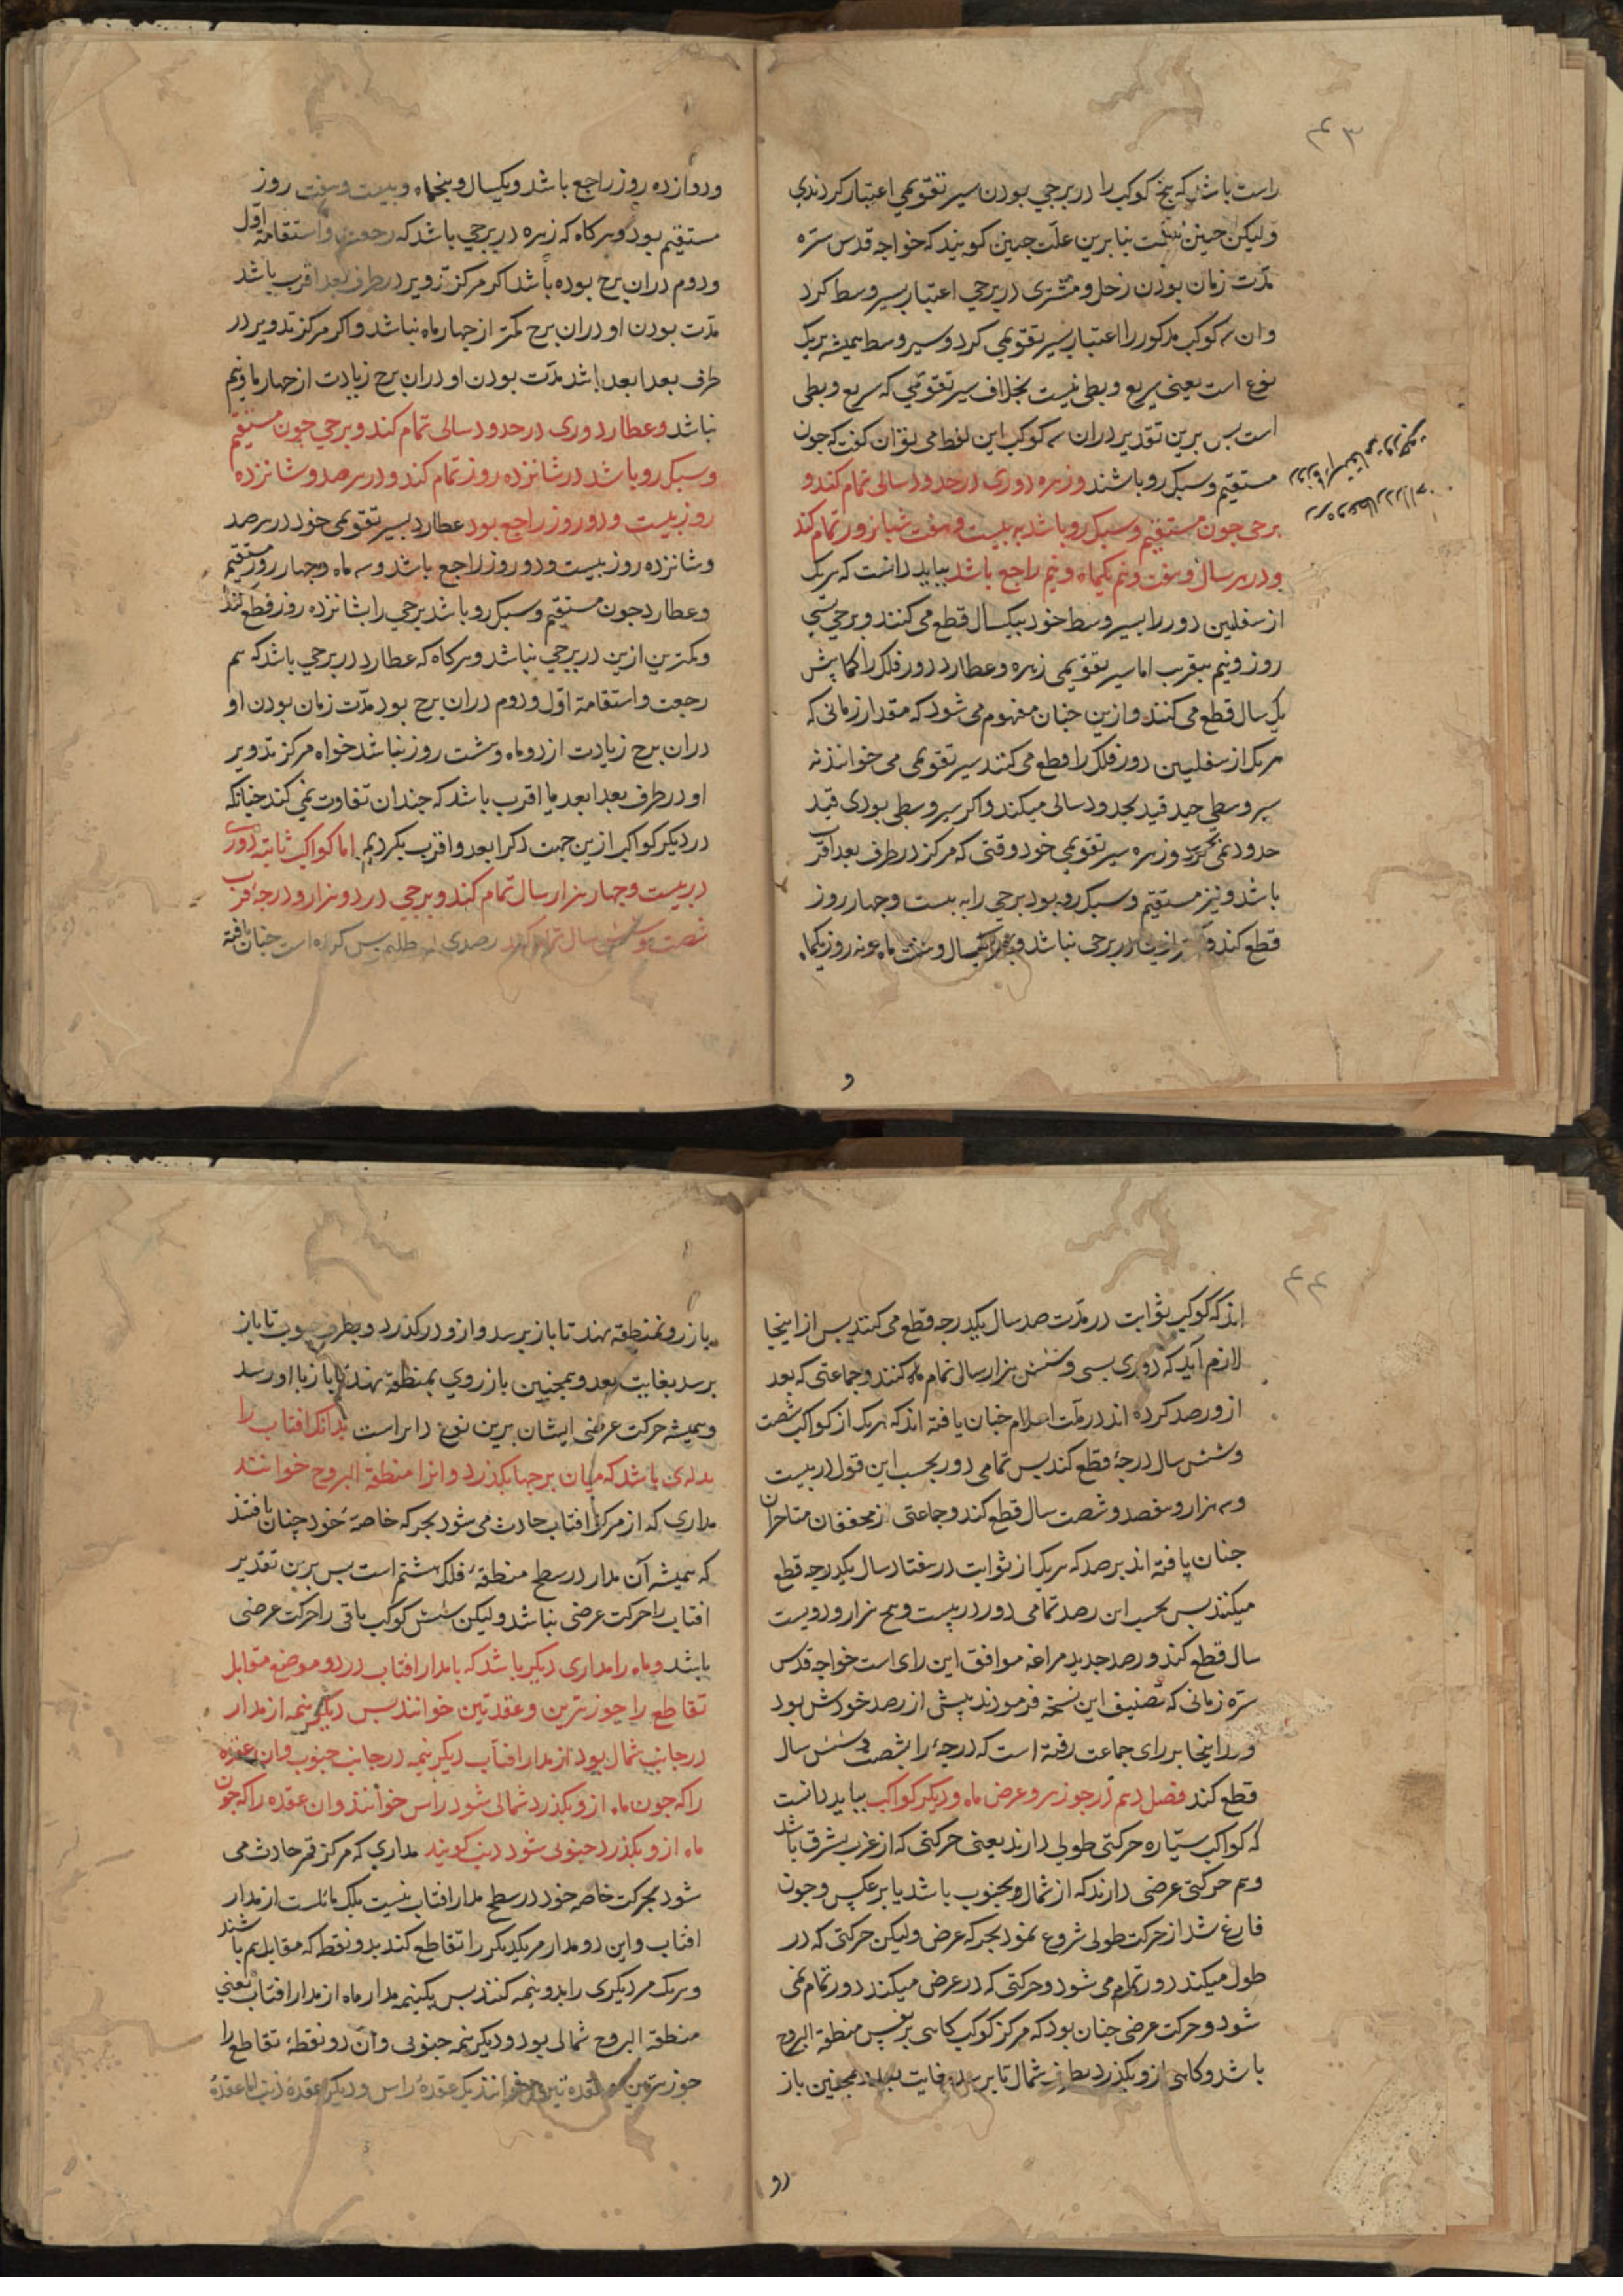 ۴۳
راست باشد که پنج کوکب را در برجی بودن سیر تقویمی اعتبار کردندی
ولیکن چنین نیست بنابرین علت چنین کویند که خواجه قدس سره
مدت زمان بودن زحل و مشتری در برجی اعتبار بسیر وسط کرد
وان سه کوکب مذکور را اعتبار بسیر تقویمی کرد و سیر وسط همیشه بریک
نوع است یعنی سریع و بطی نیست بخلاف سیر تقویمی که سریع و بطی
است پس برین تقدیر دران سه کوکب این لفظ می توان کفت که جون
مستقیم و سبک رو باشند وزهره دوری در حدود سالی تمام کند و
برجی جون مستقیم و سبک رو باشد به بیست و هفت شبانروز تمام کند
و در هر سال و هفت ونیم یکماه و نیم راجع باشد بباید دانست که هریک
از سفلین دور را بسیر وسط خود بیکسال قطع می کنند و برجی بسی
روز و نیم بتقریب اما سیر تقویمی زهره و عطارد دور فلک را کمابیش
یک سال قطع می کنند و ازین جنان مفهوم می شود که مقدار زمانی که
هریک از سفلیین دور فلک را قطع می کنند سیر تقویمی می خوانند نه
سیر وسطی جه قید بحدود سالی میکند و اکر سیر وسطی بودی قید
حدود نمی کرد وزهره سیر تقویمی خود وقتی که مرکز در طرف بعد اقرب
باشد و نیز مستقیم و سبک رو بود برجی را به بیست و جهار روز
قطع کند و در برجی نباشد و یکسال و هفت ماه و نه روز یکماه
و
ودوازده روز راجع باشد ویکسال و پنجماه و بیست و هفت روز
مستقیم بود وهر کاه که زهره در برجی باشد که رجعت واستقامة اول
ودوم دران برج بوده باشد اکر مرکز تدویر در طرف بعد اقرب باشد
مدت بودن او دران برج کمتر از جهار ماه نباشد و اکر مرکز تدویر در
طرف بعد ابعد باشد مدت بودن او دران برج زیادت از جهار ماه و نیم
نباشد وعطارد دوری در حدود سالی تمام کند و برجی جون مستقیم
وسبک رو باشد در شانزده روز تمام کند و در هر صد و شانزده
روز بیست و دو روز راجع بود عطارد بسیر تقویمی خود در هر صد
وشانزده روز بیست و دو روز راجع باشد و سه ماه و جهار روز مستقیم
وعطارد جون مستقیم و سبک رو باشد برجی را بشانزده روز قطع کند
وکمترین ازین در برجی نباشد وهر کاه که عطارد در برجی باشد که هم
رجعت واستقامة اول ودوم دران برج بود مدت زمان بودن او
دران برج زیادت از دو ماه و شت روز نباشد خواه مرکز تدویر
او در طرف بعد ابعد یا اقرب باشد که جندان تفاوت نمی کند جنانکه
در دیکر کواکب ازین جهت ذکر ابعد واقرب نکردیم اما کواکب ثابته دوری
در بیست و جهار هزار سال تمام کند و برجی در دو هزار و درجه قرب
شصت و شش سال تمام کند رصدی بطلمیوس کرده است جنان یافته
۴۴
اند که کوکب ثوابت در مدت صد سال یکدرجه قطع می کنند پس از اینجا
لازم آید که دوری بسی و شش هزار سال تمام کنند وجماعتی که بعد
ازو رصد کرده اند در ملت اسلام جنان یافته اند که هریک از کواکب شصت
وشش سال درجه قطع کند پس تمامی دور بحسب این قول در بیست
وسه هزار و هفصد و شصت سال قطع کند وجماعتی از محققان متاخران
جنان یافته اند برصد که هریک از ثوابت در هفتاد سال یکدرجه قطع
میکند پس بحسب این رصد تمامی دور در بیست وپنج هزار و دویست
سال قطع کند و رصد جدید مراغه موافق این رای است خواجه قدس
سره زمانی که تصنیف این نسخه فرمودند پیش از رصد خودش بود
و در اینجا بر رای جماعت رفته است که درجه را بشصت و شش سال
قطع کند فصل دهم در جوزهر و عرض ماه و دیکر کواکب بباید دانست
که کواکب سیاره حرکتی طولی دارند یعنی حرکتی که از غرب بشرق باشد
وهم حرکتی عرضی دارند که از شمال بجنوب باشد یا برعکس وجون
فارغ شد از حرکت طولی شروع نمود بحرکه عرض ولیکن حرکتی که در
طول میکند دور تمام می شود وحرکتی که در عرض میکند دور تمام نمی
شود وحرکت عرضی جنان بود که مرکز کوکب کاهی بر نفس منطقة البروج
باشد وکاهی ازو بکذرد بطرف شمال تا برسد بغایت بعد وهمجنین باز
رو
باز رو بمنطقه نهد تا باز برسد و ازو درکذرد وبطرف جنوب تا باز
برسد بغایت بعد وهمجنین باز روی بمنطقه نهد تا باز باو رسد
وهمیشه حرکت عرضی ایشان برین نوع دایر است بدانکه افتاب را
مداری باشد که میان برجها بکذرد وانرا منطقة البروج خوانند
مداری که از مرکز افتاب حادث می شود بحرکه خاصه خود جنان یافتند
که همیشه آن مدار در سطح منطقه فلک هشتم است پس برین تقدیر
افتاب را حرکت عرضی نباشد ولیکن شش کوکب باقی را حرکت عرضی
باشد وماه را مداری دیکر باشد که با مدار افتاب در دو موضع متقابل
تقاطع را جوزهرین وعقدتین خوانند پس دیکر نیمه از مدار
در جانب شمال بود از مدار افتاب دیکر نیمه در جانب جنوب وان عقده
را که جون ماه ازو بکذرد شمالی شود راس خوانند وان عقده را که جون
ماه ازو بکذرد جنوبی شود ذنب کویند مداری که مرکز قمر حادث می
شود بحرکت خاصه خود در سطح مدار افتاب نیست بلک مائلست از مدار
افتاب واین دو مدار مر یکدیکر را تقاطع کند بدو نقطه که مقابل هم باشند
وهریک مر دیکری را بدو نیمه کنند پس یکنیمه مدار ماه از مدار افتاب یعنی
منطقة البروج شمالی بود ودیکر نیمه جنوبی وآن دو نقطه تقاطع را
جوزهرین وعقدتین خوانند یک عقده راس ودیکر عقده ذنب اما عقده